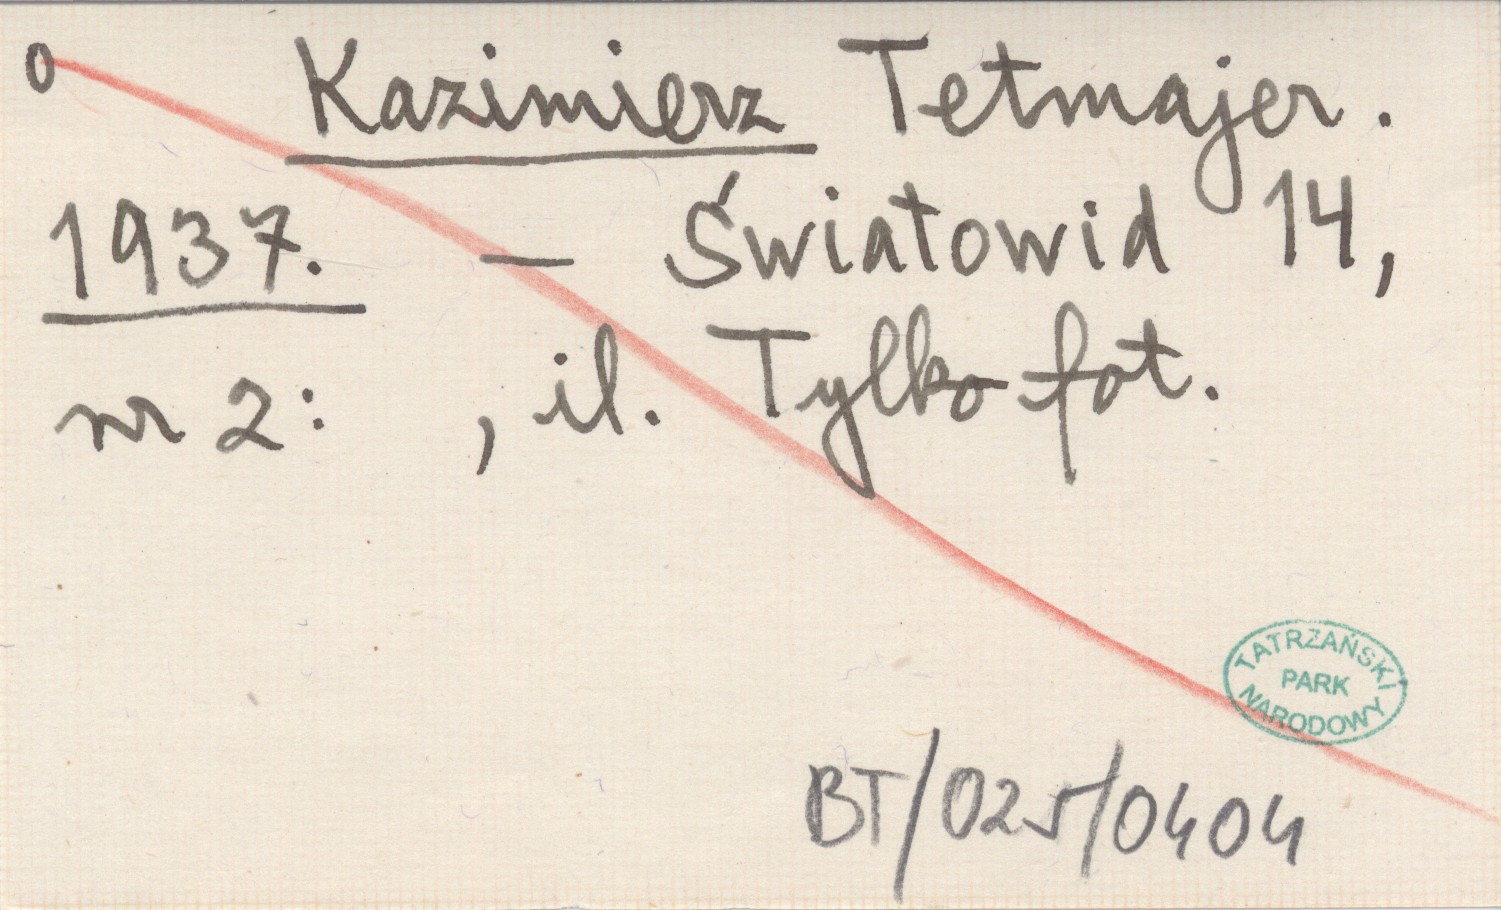 0 Kazimierz Tetmajer.
1937. — Światowid 14,
nr 2: , il. Tylko fot.
TATRZAŃSKI
PARK
NARODOWY
BT/025/0404